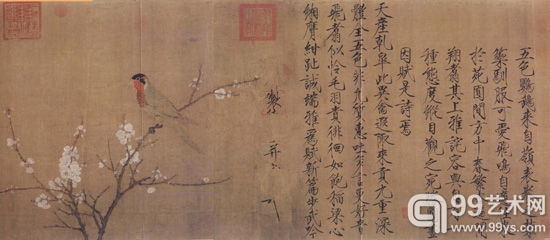 五色鸚鵡來自嶺表養
籞馴服可愛飛鳴自適
於苑囿間方中春繁
翔翥其上雅詫容與
種態度縱目觀之宛
因賦是詩焉
天產乾皋此異禽遐陬來貢九重深
體全五色非凡質惠吐多言更好音
飛翥似憐毛羽貴徘徊如飽稻粱心
緗膺紺趾誠端雅為賦新篇步武吟
製
并
99艺术网
www.99ys.com